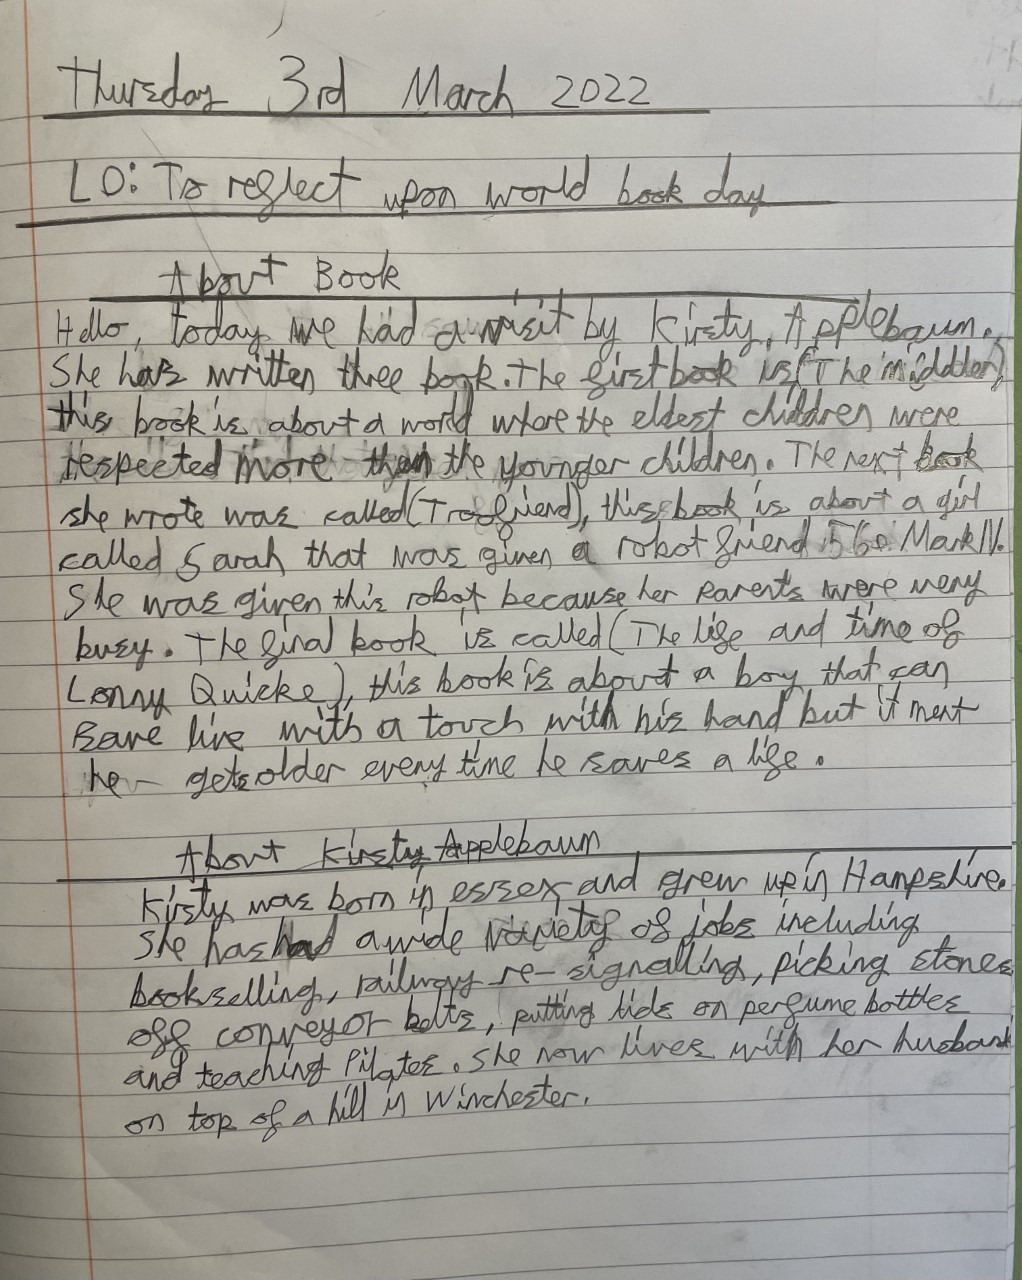 Thursday 3rd March 2022
LO: To reflect upon world book day
About Book
Hello, today we had a visit by Kirsty, Applebaum.
She has written three book. The first book is (The middler),
this book is about a world where the eldest children were
respected more than the younger children. The next book
she wrote was called (Troofriend), this book is about a girl
called Sarah that was given a robot friend 560 Mark IV.
She was given this robot because her parents were very
busy. The final book is called (The life and time of
Lonny Quicke), this book is about a boy that can
save live with a touch with his hand but it ment
he gets older every time he saves a life.
About Kirsty Applebaum
Kirsty was born in essex and grew up in Hampshire.
She has had a wide variety of jobs including
bookselling, railway re-signalling, picking stones
off conveyor belts, putting lids on perfume bottles
and teaching Pilates. She now lives with her husband
on top of a hill in Winchester.